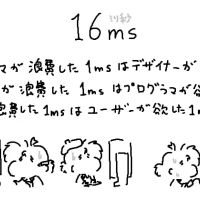 16ms
ミリ秒
マが浪費した1msはデザイナーが
が浪費した1msはプログラマが欲
浪費した1msはユーザーが欲した1m